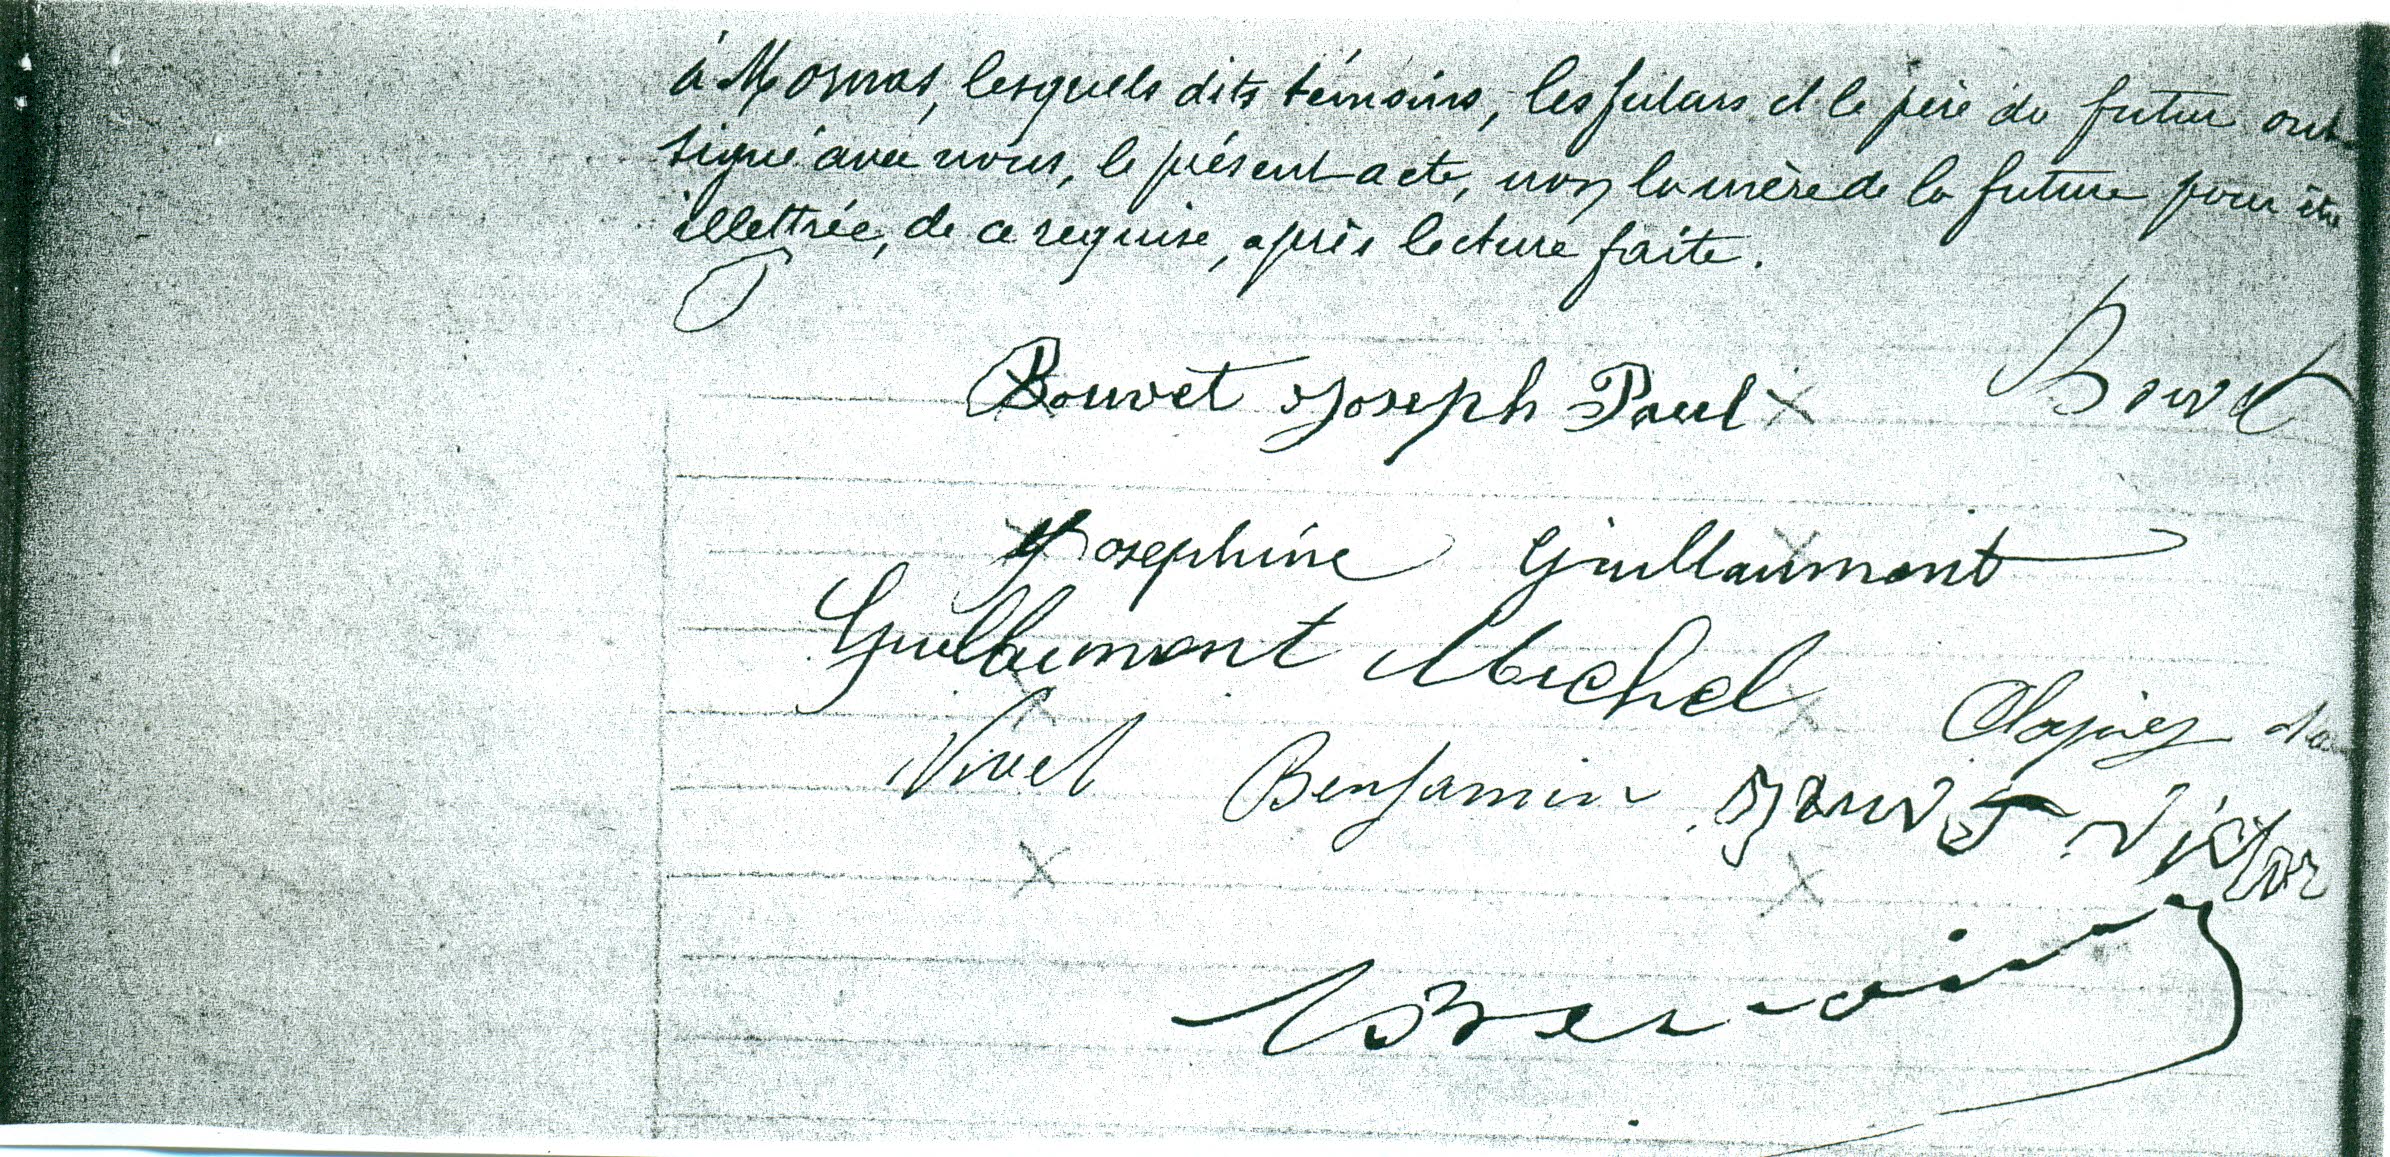 à Mornas, lesquels dits témoins, les futurs et le père du futur ont
signé avec nous, le présent acte, non la mère de la future pour être
illettrée, de ce requise, après lecture faite.
Bouvet Joseph Paul
Bouvet
Josephine Guillaumont
Guillaumont Michel
Vivet Benjamin
Victor